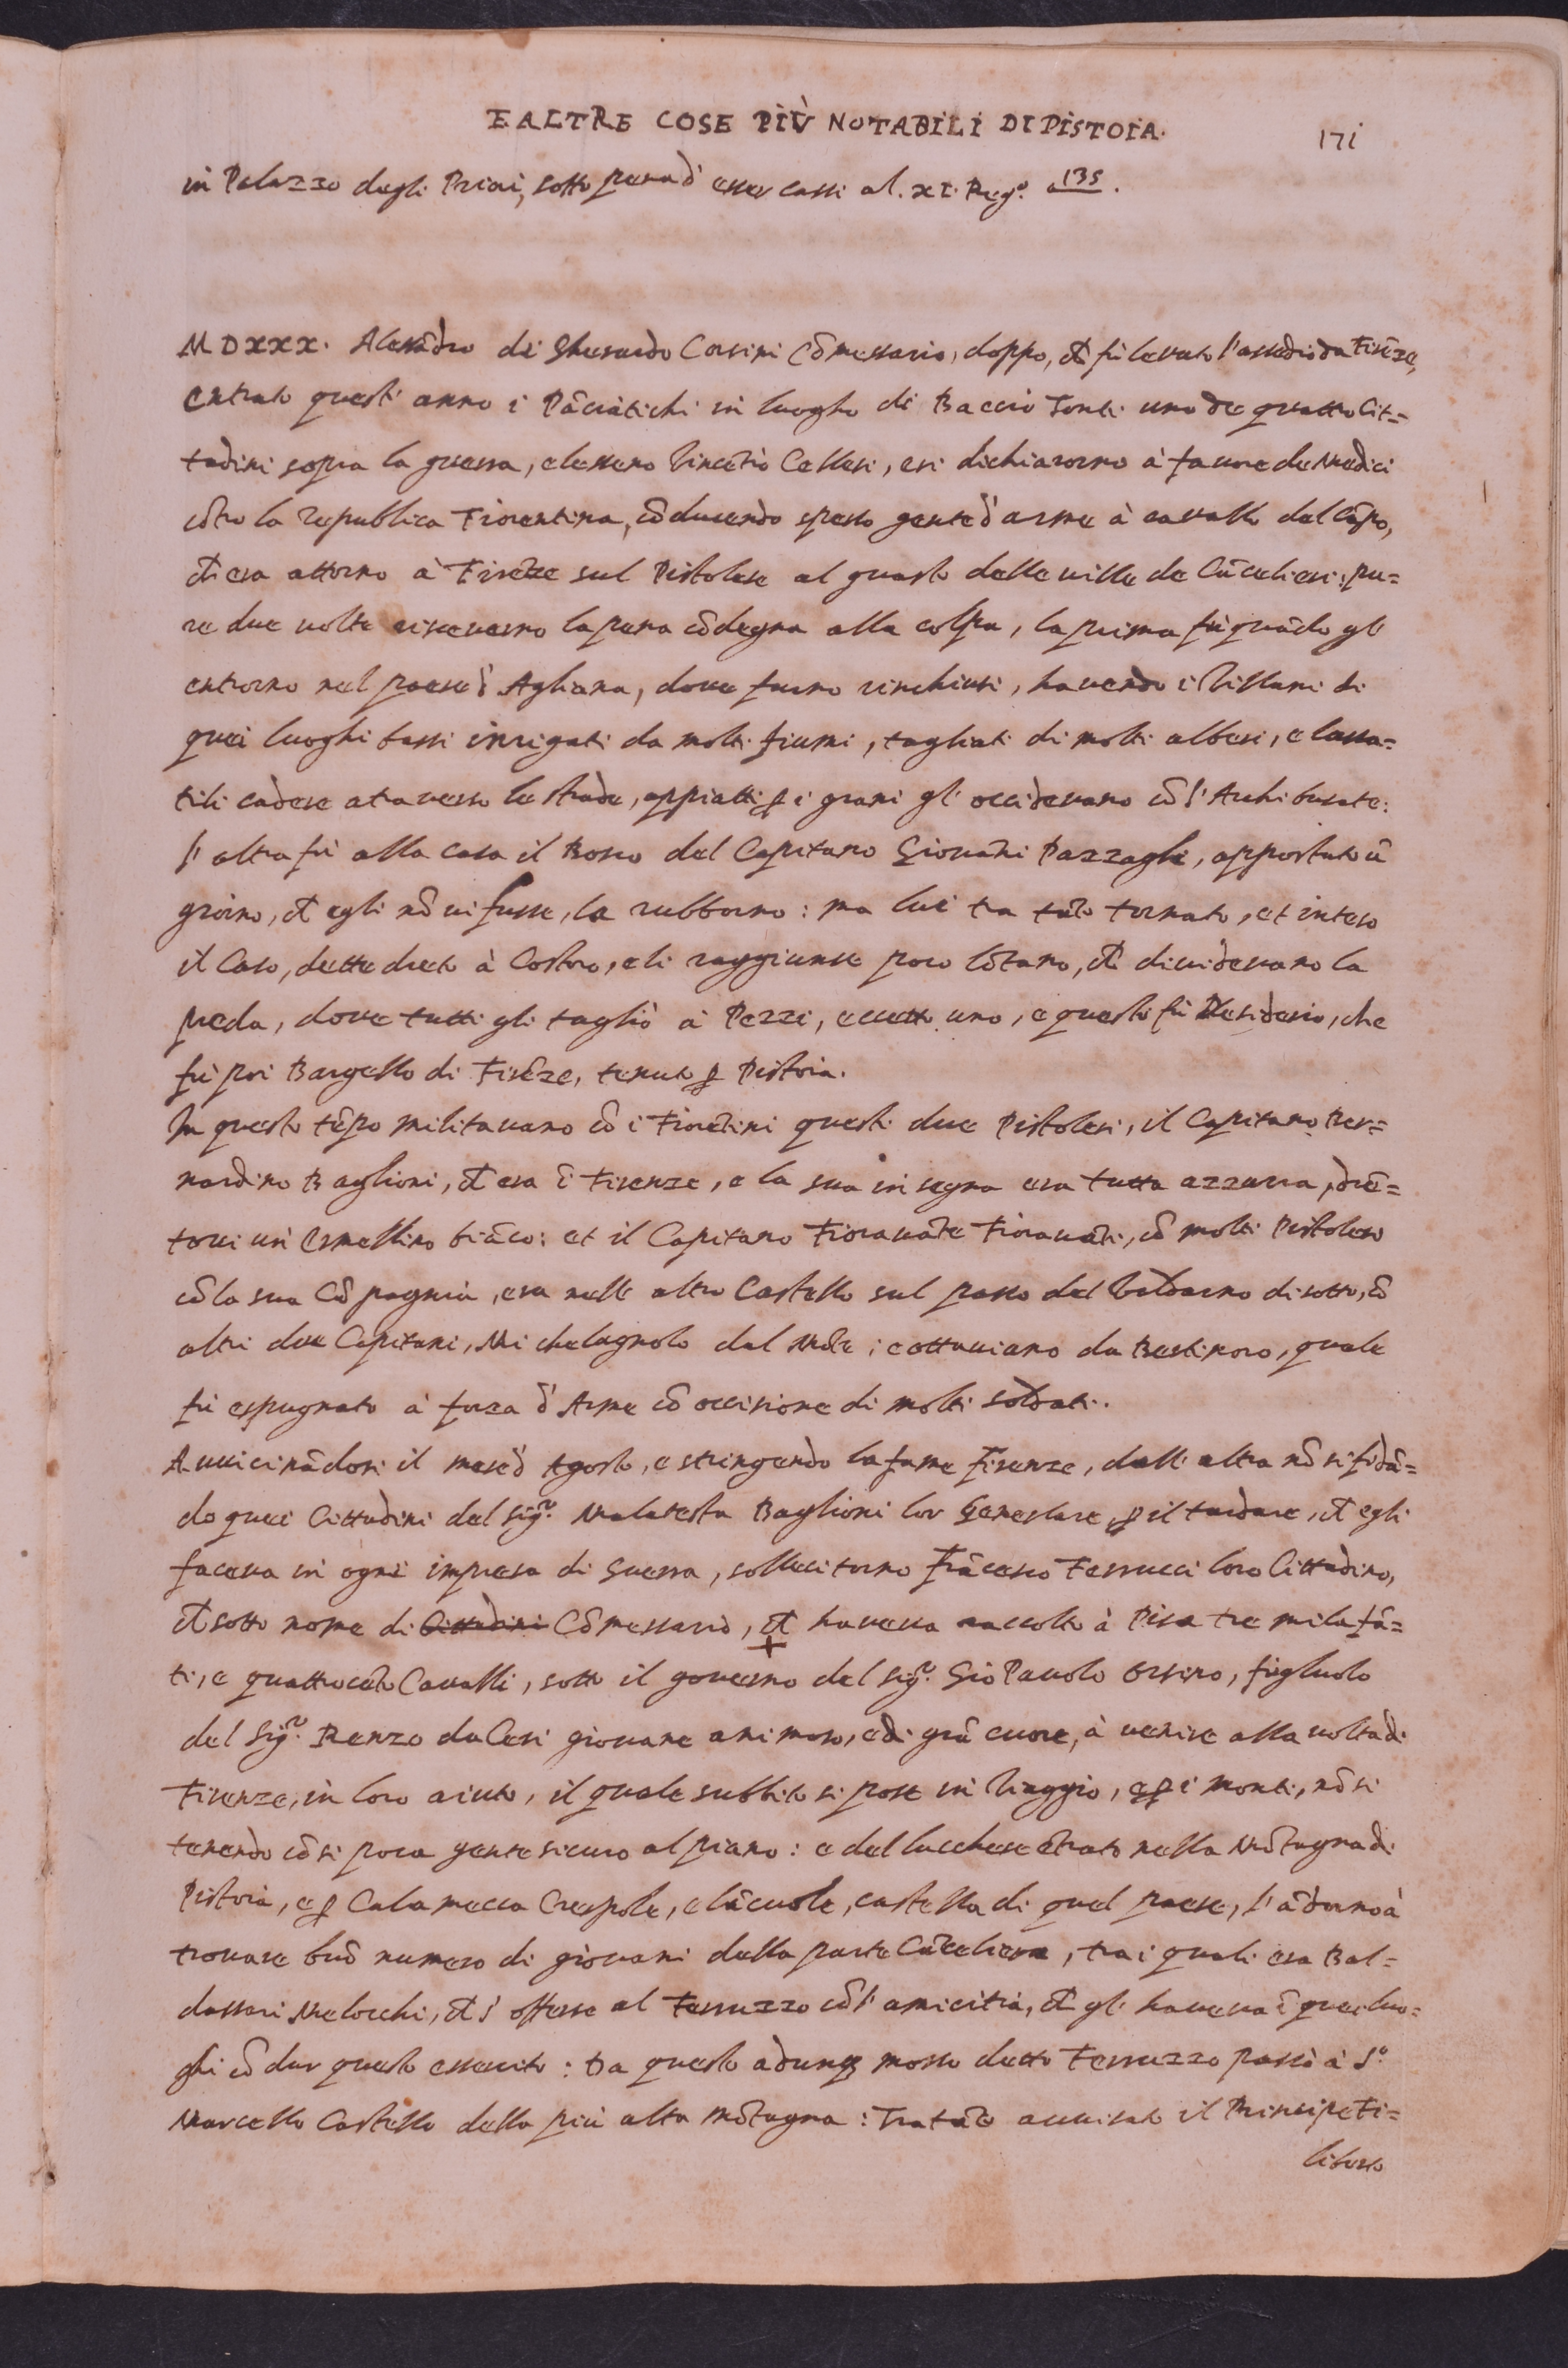 E ALTRE COSE PIÙ NOTABILI DI PISTOIA.
171
in Palazzo degli Priori, sotto pena d' esser cassi al. XI. Reg.º a 135.
MDXXX. Alessãdro di Gherardo Corsini Cõmessario, doppo, ch̃ fù levato l'assedio da Firẽze,
entrato quest' anno i Pãciatichi in luogho di Baccio Tonti uno de quattro Cit=
tadini sopra la guerra, elessero Vincẽtio Cellesi, e si dichiarorno à favore de Medici
cõtro la Republica Fiorentina, cõducendo spesso gente d' arme à cavallo del Cãpo,
ch̃ era attorno à Firẽze sul Pistolese al guasto delle ville de Cãcelieri: pu=
re due volte riceverno la pena cõdegna alla colpa, la prima fù quãdo gl'
entrorno nel paese d' Agliana, dove furno rinchiusi, havendo i Villani di
quei luoghi bassi irrigati da molti fiumi, tagliati di molti alberi, e lassa=
tili cadere atraverso le strade, appiatti ꝑ i grani gl' occidevano cõ l' Archibusate:
l' altra fù alla casa il Bosco del Capitano Giovãni Pazzagli, appostato ũ
giorno, ch̃ egli nõ vi fusse, la rubborno: ma lui tra tãto tornato, et inteso
il Caso, dette dreto à Costoro, e li raggiunse poco lõtano, ch̃ dividevano la
preda, dove tutti gli tagliò à Pezzi, eccetto uno, e questo fù Desiderio, che
fù poi Bargello di Firẽze, tenuto ꝑ Pistoia.
In questo tẽpo militavano cõ i Fiorẽtini questi due Pistolesi, il Capitano Ber=
nardino Baglioni, ch̃ era ĩ Firenze, e la sua insegna era tutta azzurra, drẽ=
tovi un' Ermellino biãco: et il Capitano Fioravãte Fioravãti, cõ molti Pistolesi
cõ la sua Cõpagnia, era nell' altro Castello sul passo del Valdarno di sotto, cõ
altri due Capitani, Michelagnolo dal Mõte; e ottaviano da Bertinoro, quale
fù espugnato à forza d' Arme cõ occisione di molti soldati.
Avvicinãdosi il mese d' Agosto, e stringendo la fame Firenze, dall' altra nõ si fidã=
do quei Cittadini del Sig.r Malatesta Baglioni lor Generlare ꝑ il tardare, ch̃ egli
faceva in ogni impresa di Guerra, sollecitorno Frãcesco Ferrucci loro Cittadino,
ch̃ sotto nome di Cittadini Cõmessario, ch̃ haveva raccolto à Pisa tre mila fã=
ti, e quattrocẽto Cavalli, sotto il governo del Sig.r Gio Pavolo Orsino, figluolo
del Sig.r Renzo da Ceri giovane animoso, e di grã cuore, à venire alla volta di
Firenze, in loro aiuto, il quale subbito si pose in Viaggio, e ꝑ i monti, nõ si
tenendo cõ si poca gente sicuro al piano: e del lucchese ẽtrato nella Mõtagna di
Pistoia, e ꝑ Calamecca Crespole, e lãcuole, castella di quel paese, l' ãdorno à
trovare buõ numero di giovani della parte Cãceliera, tra i quali era Bal=
dassari Melocchi, ch̃ s' offerse al Ferruzzo cõ l' amicitia, ch̃ gl' haveva ĩ quei luo=
ghi cõdur questo essercito: Da questo adunqꝫ mosso detto Ferruzzo passò à S.º
Marcello Castello della più alta mõtagna: Tra tãto avvisato il Principe Fi=
liberto